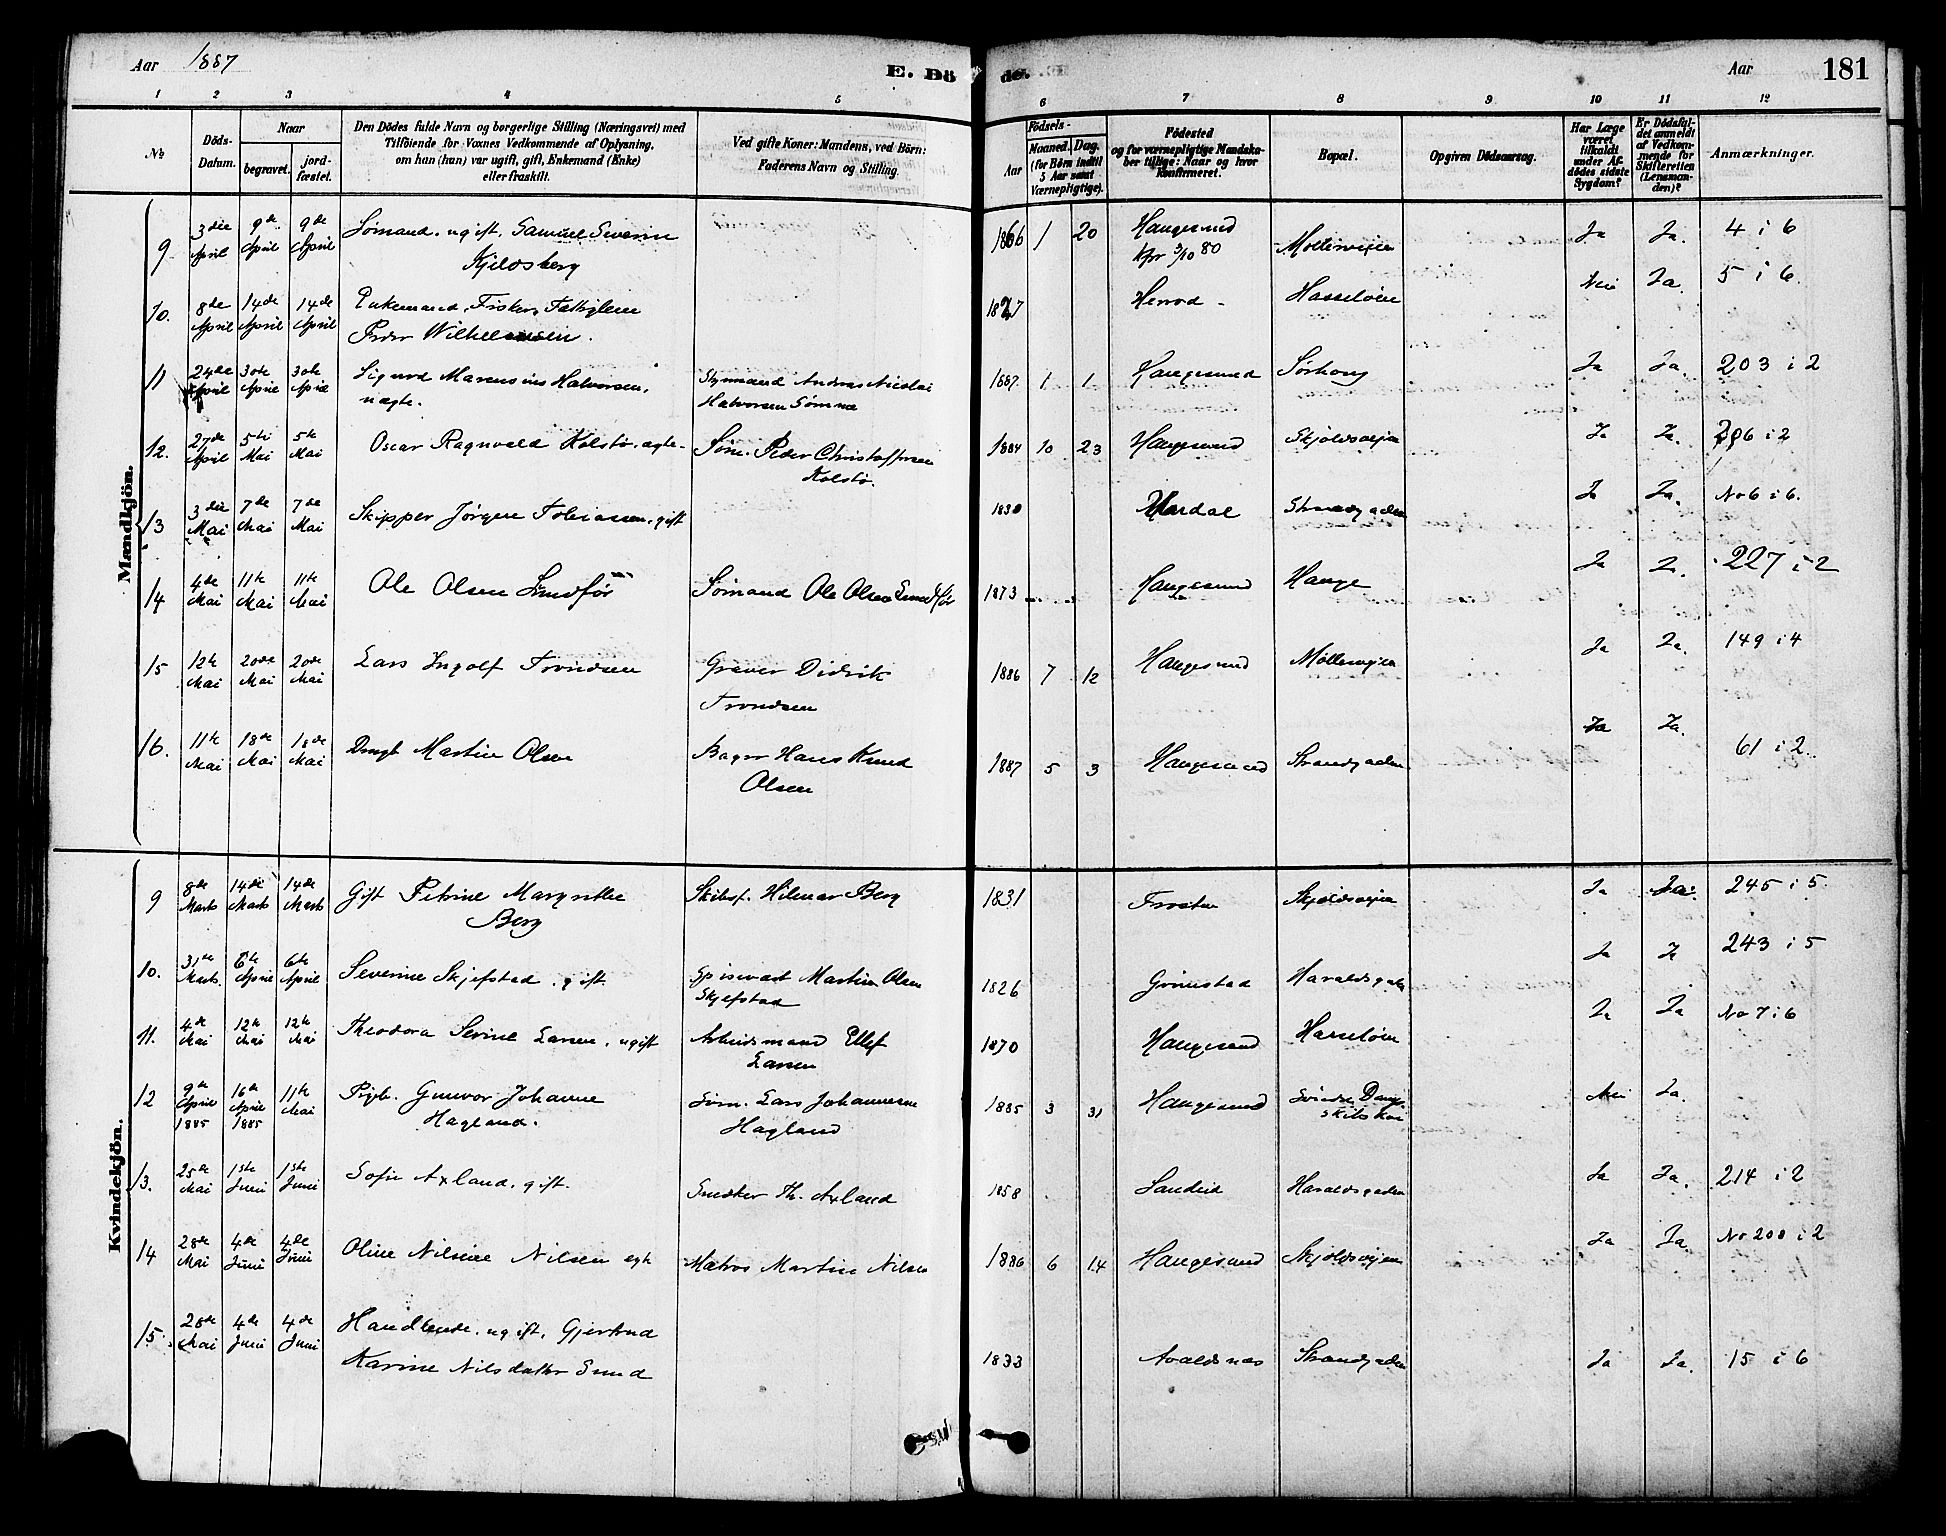 Aar 1887
E. Dö
de.
Aar
181
1 2 3 4 5 6 7 8 9 10 11 12
No
Döds-Datum.
Naar
begravet.
jord-fæstet.
Den Dödes fulde Navn og borgerlige Stilling (Næringsvei) med
Tilföiende for Voxnes Vedkommende af Oplysning,
om han (hun) var ugift, gift, Enkemand (Enke)
eller fraskilt.
Ved gifte Koner: Mandens, ved Börn:
Faderens Navn og Stilling.
Födsels-
Aar
Maaned. Dag.
(for Börn indtil
5 Aar samt
Værnepligtige).
Födested
og for værnepligtige Mandska-
ber tillige: Naar og hvor
konfirmeret.
Bopæl.
Opgiven Dödsaarsag.
Har Læge
været
tilkaldt
under Af-
dödes sidste
Sygdom?
Er Dödsfal-
det anmeldt
af Vedkom-
mende for
Skifteretten
(Lensman-
den)?
Anmærkninger.
Mandkjön.
9 3die April 9de April 9de April Sömand. ugift. Samuel Severin Kjeldsberg 1866 1 20 Haugesund 80 Möllerveien Ja Ja. 4 i 6
10. 8de April 14de April 14de April Enkemand, Fisker, Peder Wilhelmsen. 1827 Hasseløen Nei Ja. 5 i 6.
11 24de April 30te April 30te April Sigurd Marensius Halvorsen, uægte. Styrmand Andreas Nicolai Halvorsen Sömme 1887. 1 1 Haugesund Sørhoug Ja Ja. 203 i 2
12. 27de April 5te Mai 5te Mai Oscar Ragnvald Kolstø. ægte. Söm. Peder Christoffersen Kolstø. 1884 10 23 Haugesund Skjoldsveien Ja Ja. i 2
13 3die Mai 7de Mai 7de Mai Skipper Jörgen Tobiassen. gift 1830 Strandgaden Ja Ja. No 6 i 6.
14 4de Mai 11te Mai 11te Mai Ole Olsen Sømand Ole Olsen 1873 Haugesund Hauge Ja Ja. 227 i 2
15 12te Mai 20de Mai 20de Mai Lars Ingolf Trondsen Graver Didrik Trondsen 1886 7 12 Haugesund Möllerveien Ja Ja. 149 i 4
16. 11te Mai 18de Mai 18de Mai Drgb. Martin Olsen Bager Hans Knud Olsen 1887 5 3 Haugesund Strandgaden Ja Ja. 61 i 2.
Kvindekjön.
9 8de Marts 14de Marts 14de Marts Gift Petrine Margrethe Berg Skibsf. Hilmar Berg 1831 Skjoldsveien Ja Ja. 245 i 5.
10. 31te Marts. 6te April 6te April Severine Skjefstad. gift. Spisevært Martin Olsen Skjefstad 1826 Grimstad Haraldsgaden Ja Ja 243 i 5
11. 4de Mai 12te Mai 12te Mai Theodora Serine Larsen. ugift Arbeidsmand Ellef Larsen 1870 Haugesund Hasseløen Ja Ja No 7 i 6
12 9de April 1885 16de April 1885 11te Mai Pigeb. Gunvor Johanne Hagland. Söm. Lars Johannesen Hagland 1885 3 31 Haugesund Nei Ja.
13. 25de Mai 1ste Juni 1ste Juni Sofie Axland. gift. Snedker Th. Axland 1858 Sandeid Haraldsgaden Ja Ja. 214 i 2
14 28de Mai 4de Juni 4de Juni Oline Nilsine Nilsen egte Matros Martin Nilsen 1886 6 14 Haugesund Skjoldsveien Ja Ja. No 200 i 2
15. 28de Mai 4de Juni 4de Juni Handlende. ugift. Gjertrud Karine Nilsdatter Sund 1833 Avaldsnæs Strandgaden Ja Ja. 15 i 6